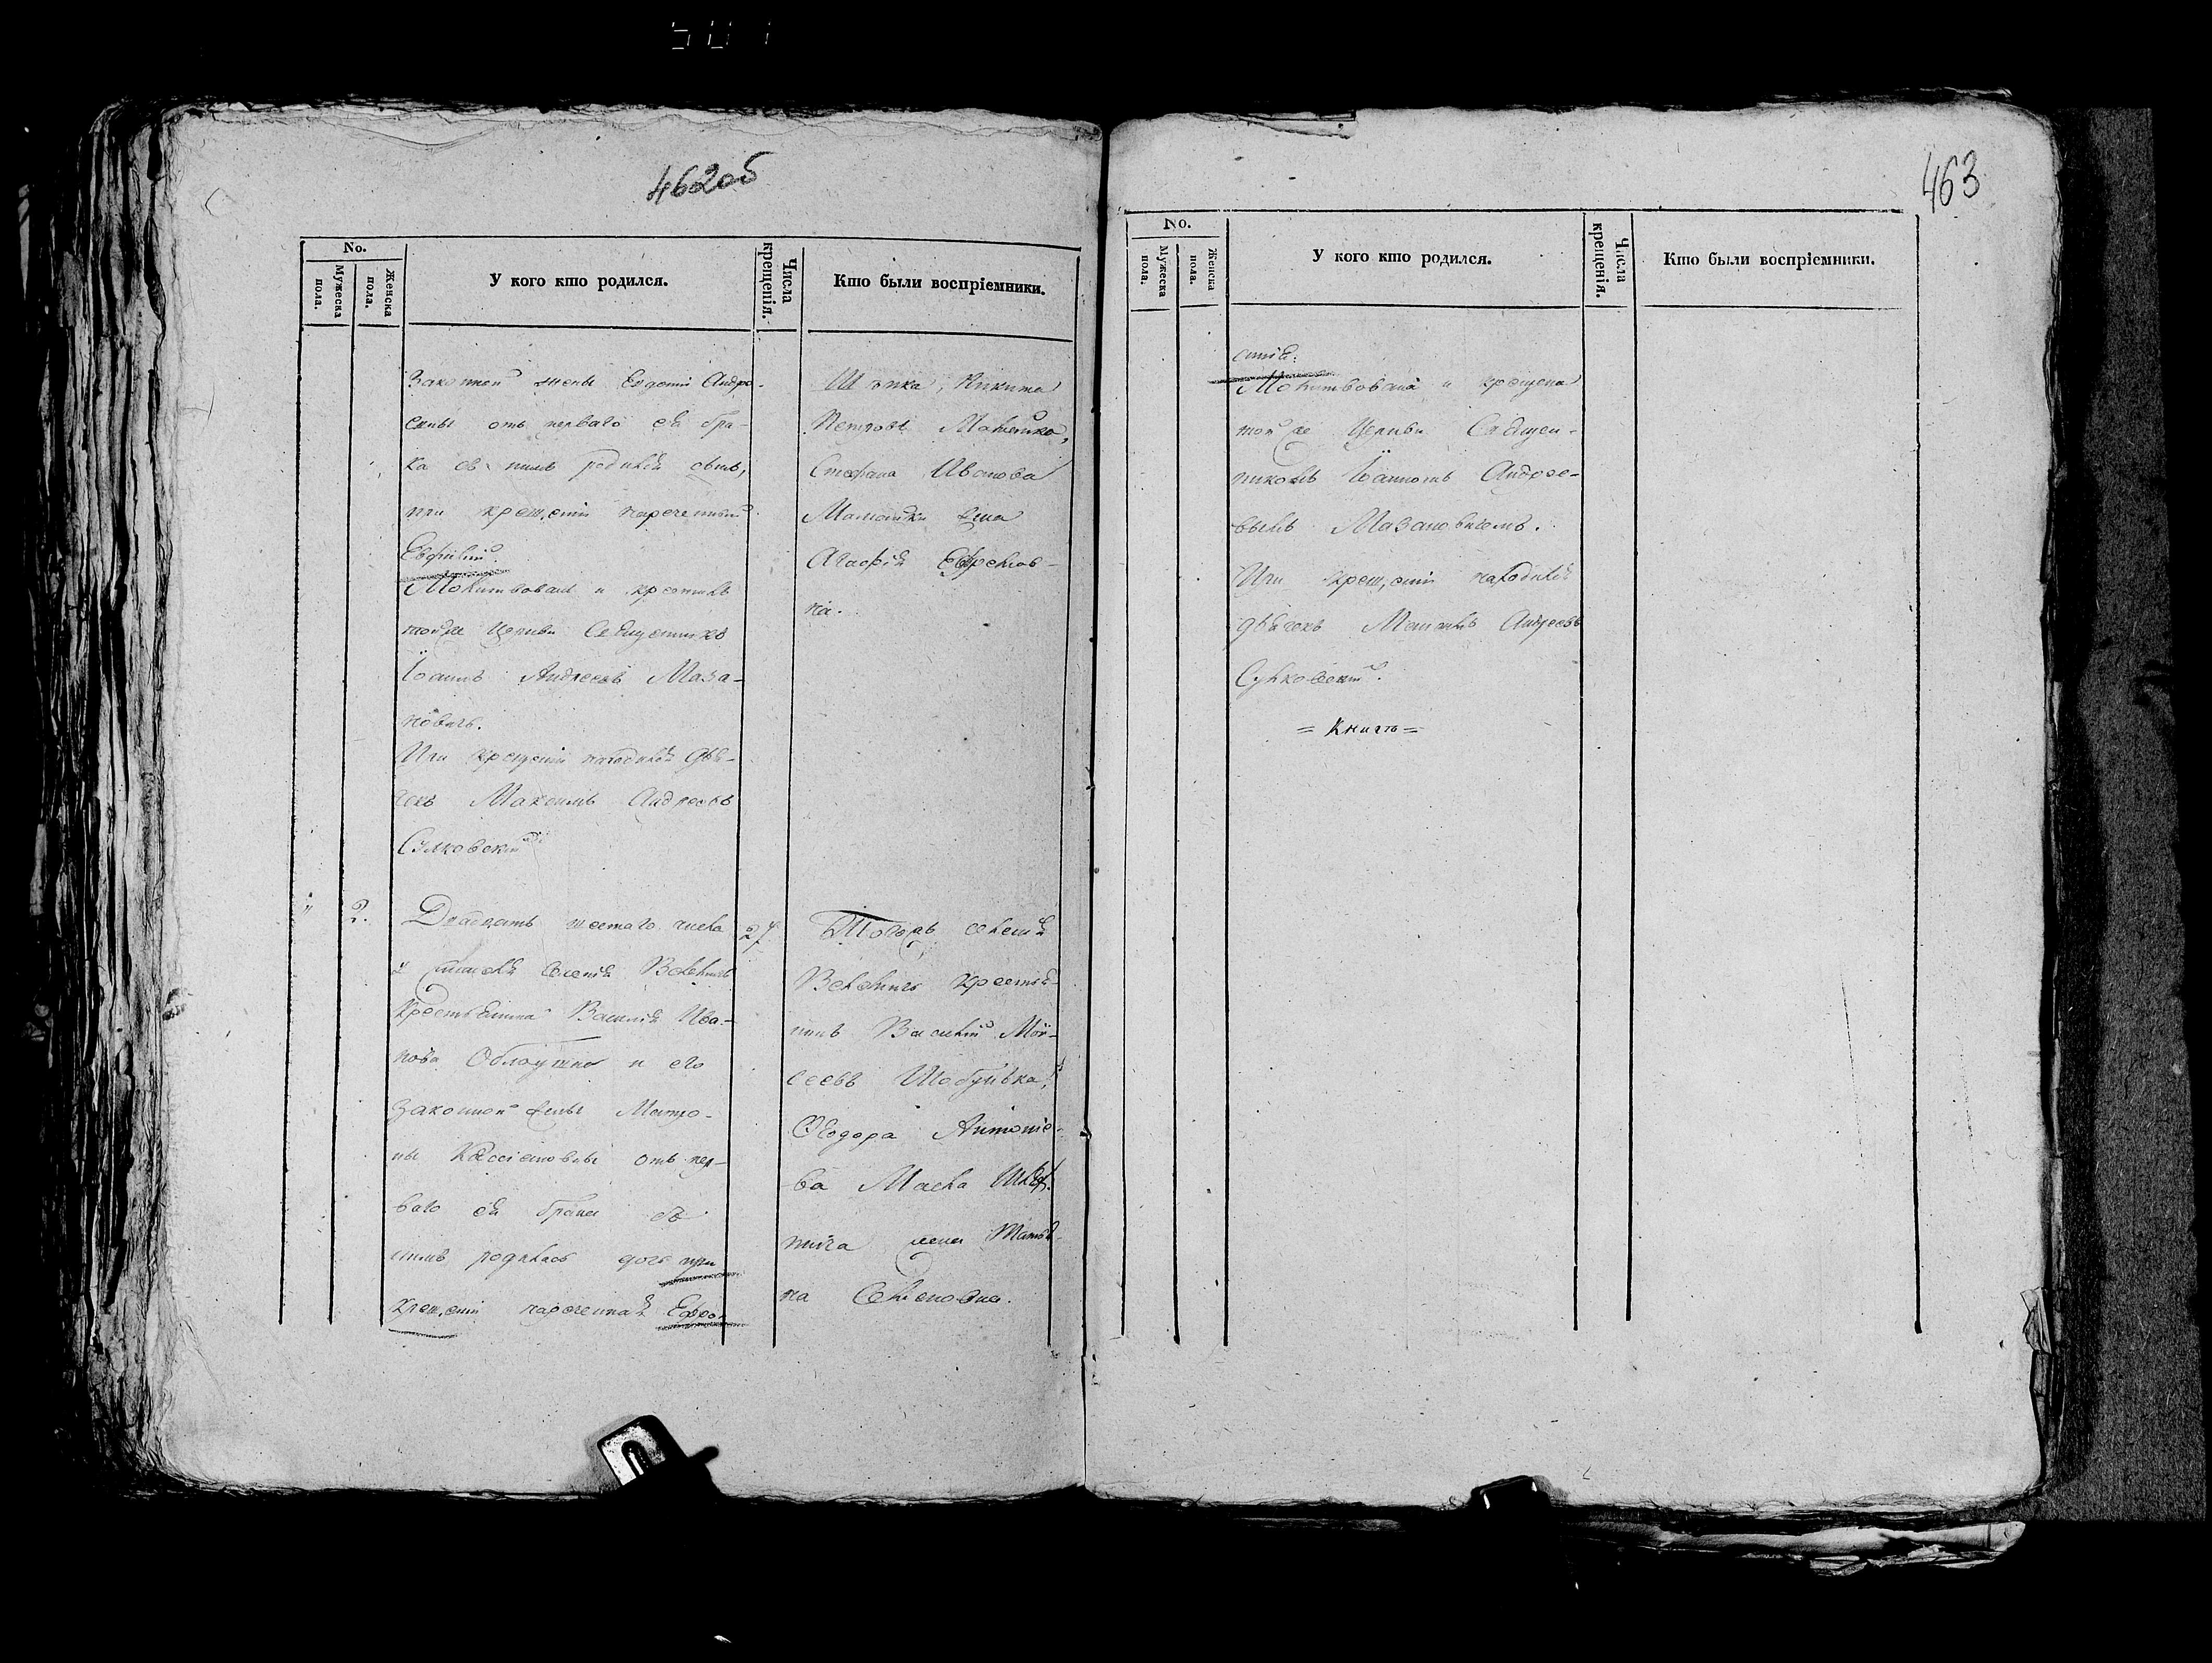 462об
No.
Мужеска пола.
Женска пола.
У кого кто родился.
Числа крещенія.
Кто были воспріемники.
Законной жены Евдокіи Андре-
евны отъ перваго ея бра-
ка съ нимъ родился сынъ,
при крещеніи нареченный
Евфимій.
Молитвовалъ и крестилъ
тойже Церкви Священникъ
Іоаннъ Андреевъ Маза-
новичъ.
При крещеніи находился дья-
чекъ Максимъ Андреевъ
Сулковскій.
Никита
Петровъ
Стефана Иванова
жена
Агафія Ефремов-
на.
" 2.
Двадцать шестаго числа
крестьянина Василія Ива-
нова и его
законной жены Матро-
ны Кассіановны отъ пер-
ваго ея брака съ
нимъ родилась дочь при
крещеніи нареченная Евфро-
27
Тогожъ селенія
крестья-
нинъ Василій Мой-
сеевъ
Ѳеодора Антоніе-
ва
жена Татья-
на Семеновна.
463
No.
Мужеска пола.
Женска пола.
У кого кто родился.
Числа крещенія.
Кто были воспріемники.
синія:
Молитвована и крещена
тойже Церкви Священ-
никомъ Іоанномъ Андрее-
вымъ Мазановичемъ.
При крещеніи находился
дьячекъ Максимъ Андреевъ
Сулковскій.